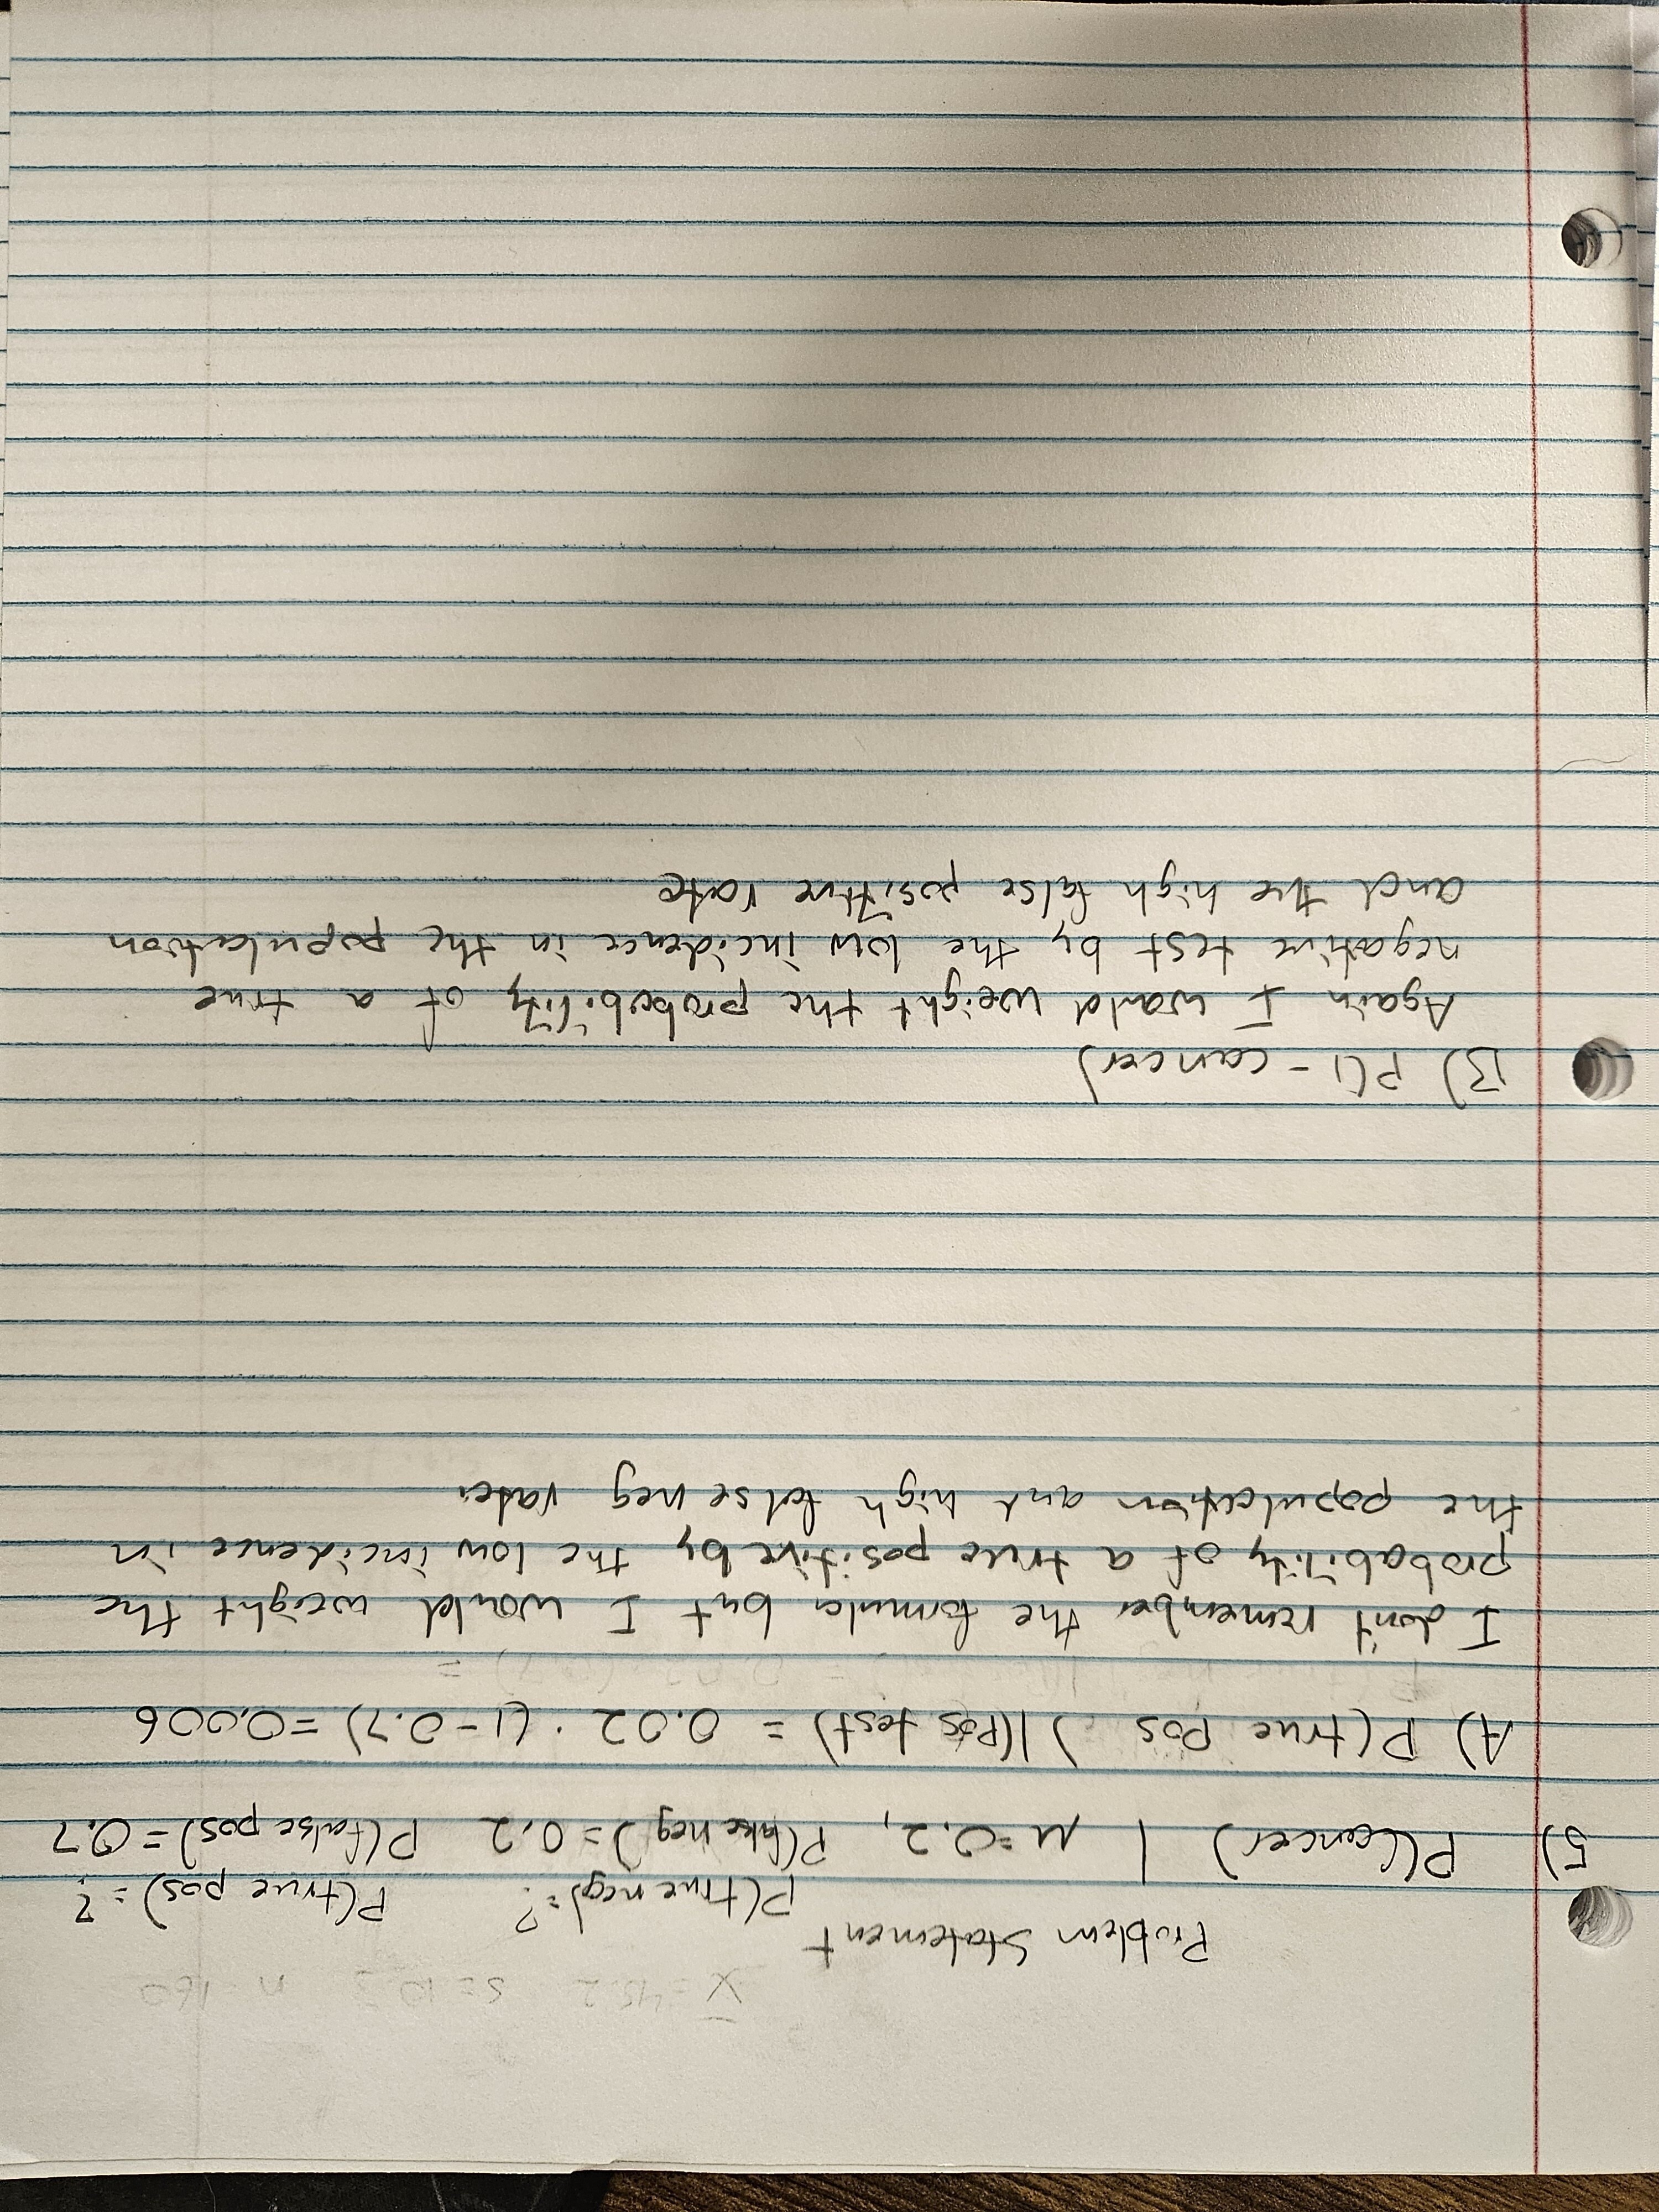 X̄ = 45.2 s = 10.3 n = 160
Problem Statement
P(true neg) = ? P(true pos) = ?
5) P(Cancer) | μ = 0.2, P(false neg) = 0.2 P(false pos) = 0.7
A) P(true Pos ) |(Pos test) = 0.02 · (1 - 0.7) = 0.006
= 0.02 · (0.7) =
I don't remember the formula but I would weight the
probability of a true positive by the low incidence in
the population and high false neg rate.
B) P(1 - cancer)
Again I would weight the probability of a true
negative test by the low incidence in the population
and the high false positive rate